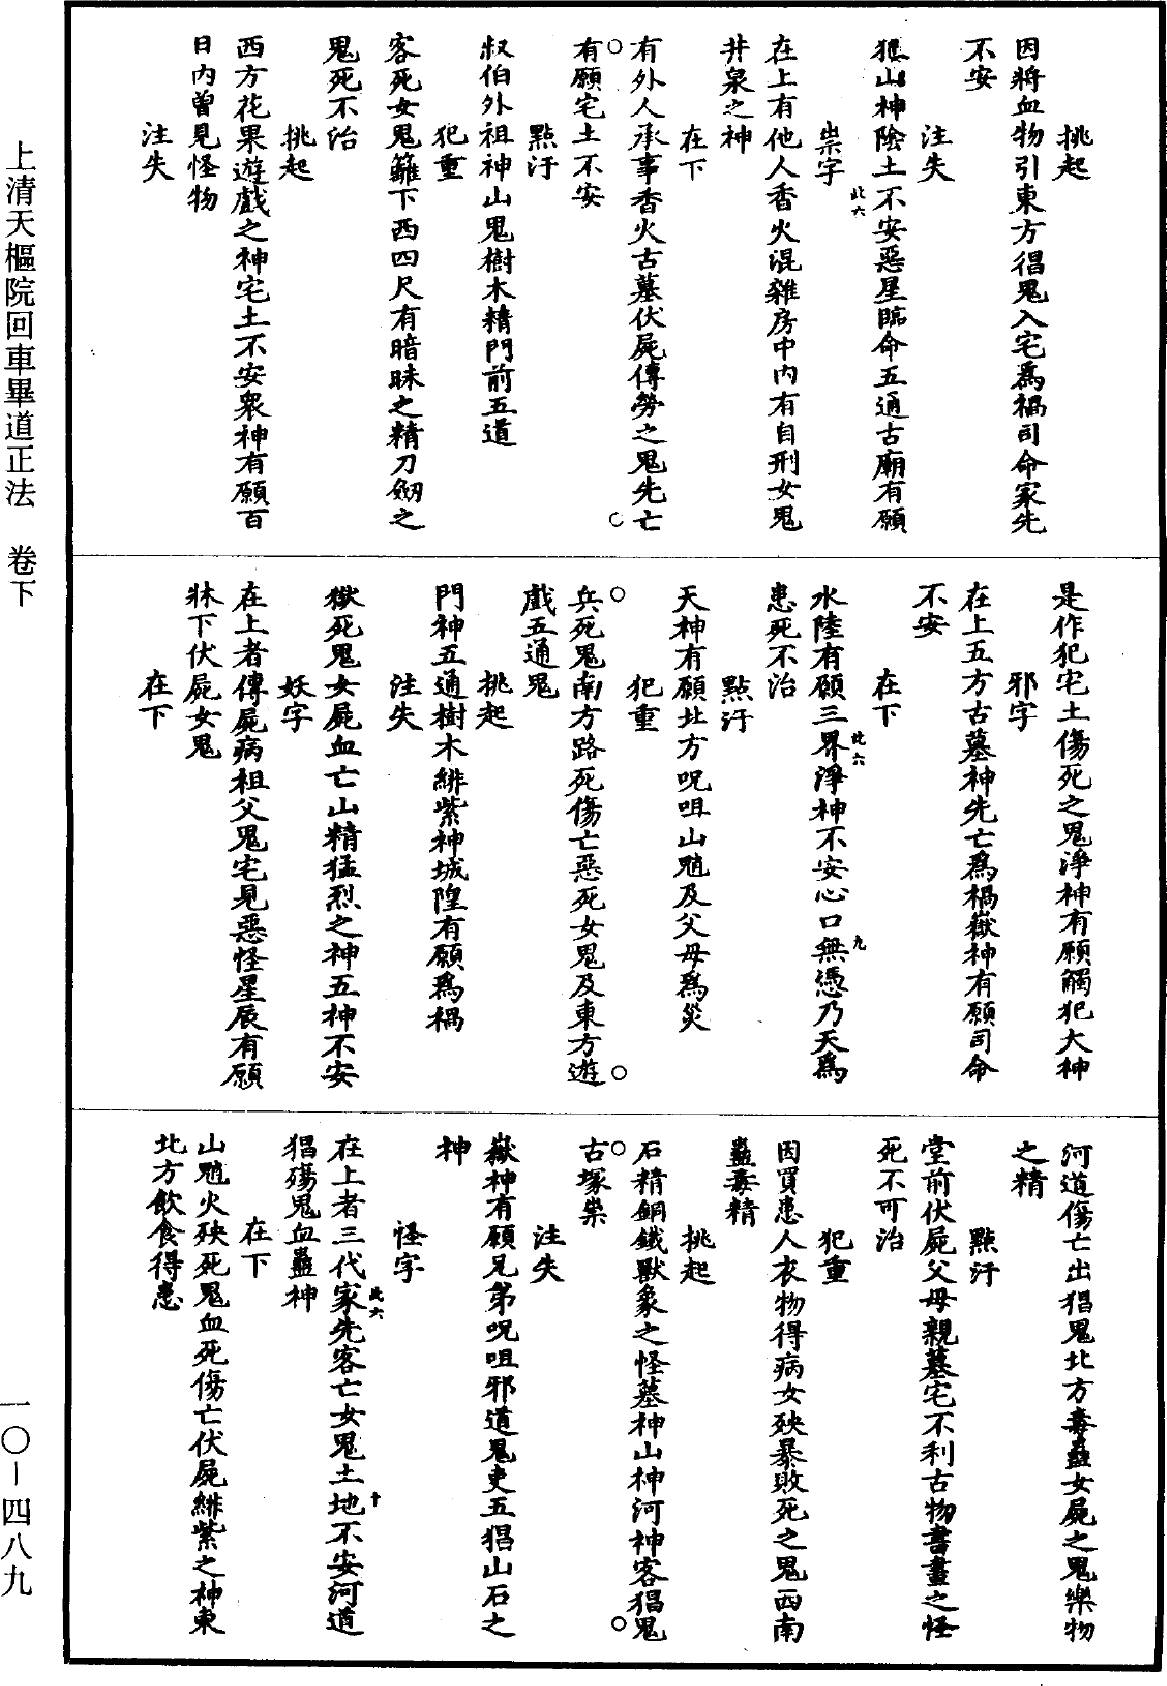 挑起
因將血物引東方猖鬼入宅爲禍司命家先
不安
注失
猳山神陰土不安惡星臨命五通古廟有願
祟字 此六
在上有他人香火混雜房中內有自刑女鬼
井泉之神
在下
有外人承事香火古墓伏屍傳勞之鬼先亡
有願宅土不安
點汙
叔伯外祖神山鬼樹木精門前五道
犯重
客死女鬼籬下西四尺有暗昧之精刀劒之
鬼死不治
挑起
西方花果遊戲之神宅土不安衆神有願百
日內曾見怪物
注失
是作犯宅土傷死之鬼淨神有願觸犯大神
邪字
在上五方古墓神先亡爲禍嶽神有願司命
不安
在下
水陸有願三界淨神不安心口無憑乃天爲
此六 九
患死不治
點汙
天神有願北方呪咀山魈及父母爲災
犯重
兵死鬼南方路死傷亡惡死女鬼及東方遊
戲五通鬼
挑起
門神五通樹木緋紫神城隍有願爲禍
注失
獄死鬼女屍血亡山精猛烈之神五神不安
妖字
在上者傳屍病祖父鬼宅見惡怪星辰有願
牀下伏屍女鬼
在下
河道傷亡出猖鬼北方毒蠱女屍之鬼樂物
之精
點汙
堂前伏屍父母親墓宅不利古物書畫之怪
死不可治
犯重
因買患人衣物得病女殃暴敗死之鬼西南
蠱毒精
挑起
石精銅鐵獸象之怪墓神山神河神客猖鬼
古塚祟
注失
嶽神有願兄弟呪咀邪道鬼吏五猖山石之
神
怪字
在上者三代家先客亡女鬼土地不安河道
此六 十
猖殤鬼血蠱神
在下
山魈火殃死鬼血死傷亡伏屍緋紫之神東
北方飲食得患
上清天樞院回車畢道正法 卷下
一〇－四八九